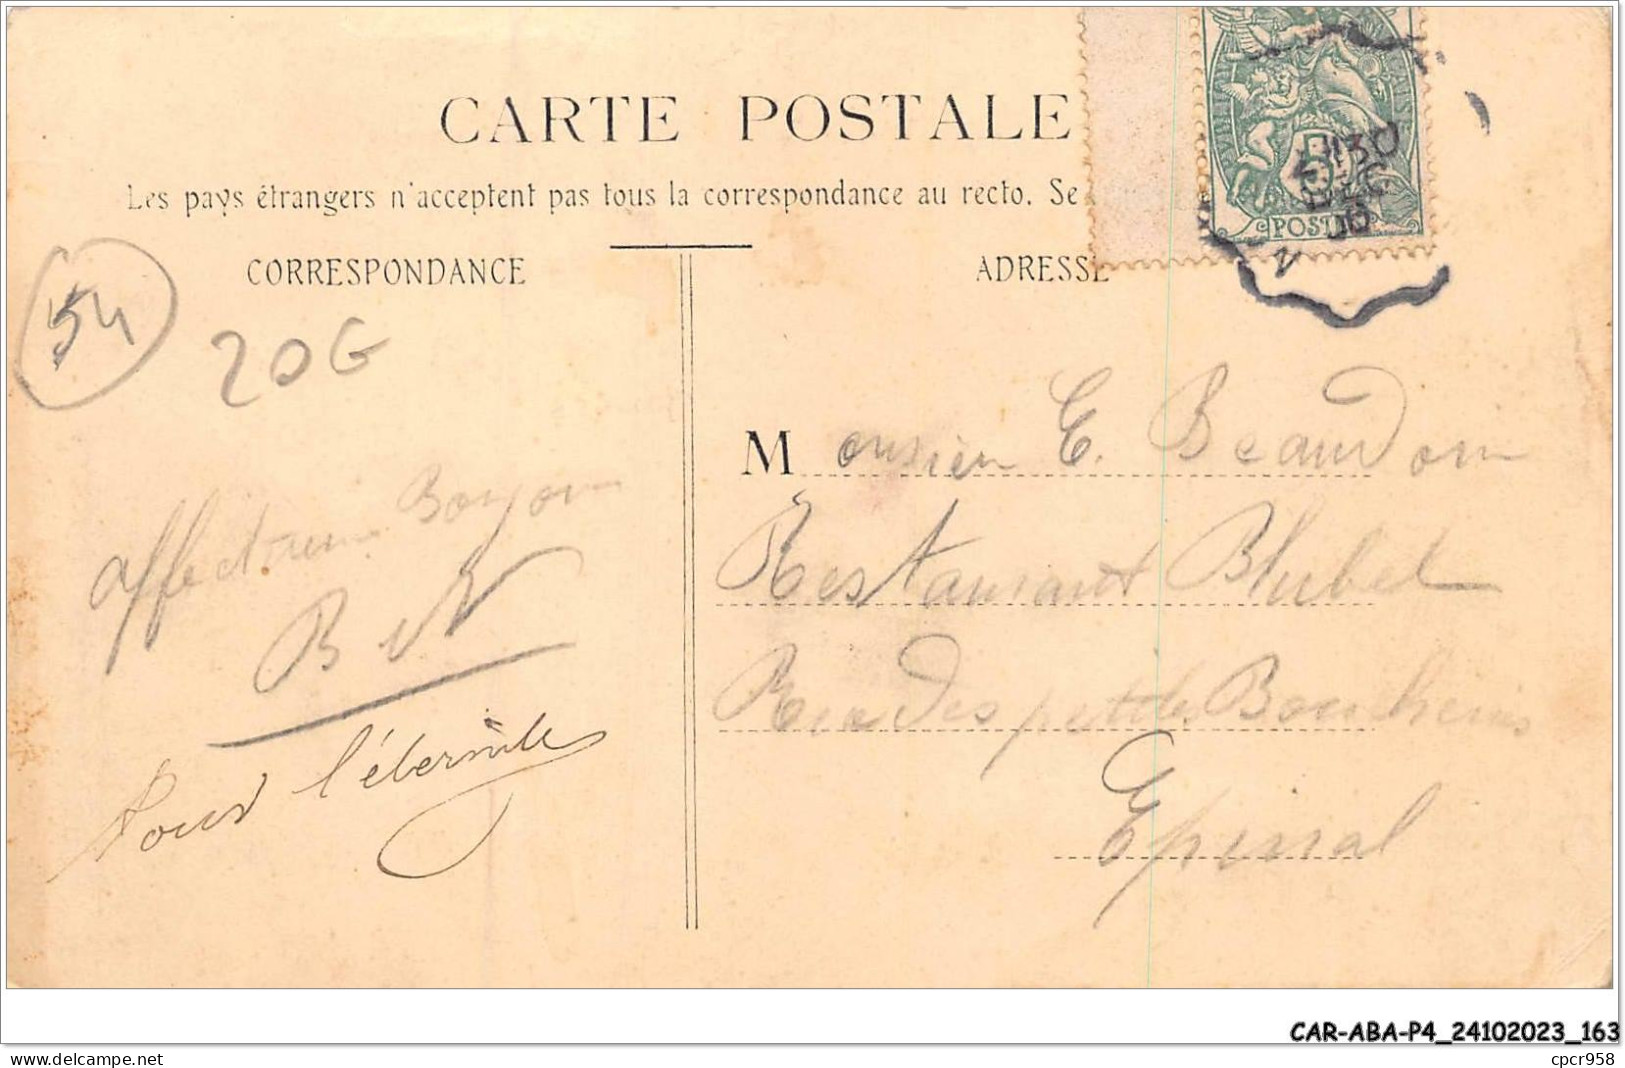 CARTE POSTALE
Les pays étrangers n'acceptent pas tous la correspondance au recto. Se
CORRESPONDANCE
ADRESSE
POSTE
30
54
20G
Monsieur E. Beaudoin
Restaurant Blubel
Rue des petites Boucheries
Epinal
affectueux Bonjour
Pour l'éternité
CAR-ABA-P4_24102023_163
www.delcampe.net
cpcr958